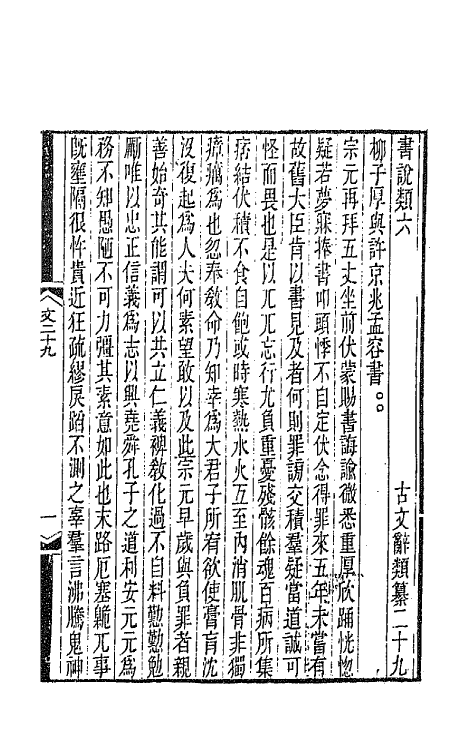 書說類六　古文辭類纂二十九
柳子厚與許京兆孟容書。。
宗元再拜五丈坐前伏蒙賜書誨諭微悉重厚欣踊恍惚
疑若夢寐捧書叩頭悸不自定伏念得罪來五年未嘗有
故舊大臣肯以書見及者何則罪謗交積羣疑當道誠可
怪而畏也是以兀兀忘行尤負重憂殘骸餘魂百病所集
痞結伏積不食自飽或時寒熱水火互至內消肌骨非獨
瘴癘爲也忽奉敎命乃知幸爲大君子所宥欲使膏肓沈
沒復起爲人夫何素望敢以及此宗元早歲與負罪者親
善始奇其能謂可以共立仁義裨敎化過不自料懃懃勉
勵唯以忠正信義爲志以興堯舜孔子之道利安元元爲
務不知愚陋不可力彊其素意如此也末路厄塞臲兀事
旣壅隔很忤貴近狂疏繆戾蹈不測之辜羣言沸騰鬼神
文二十九　一